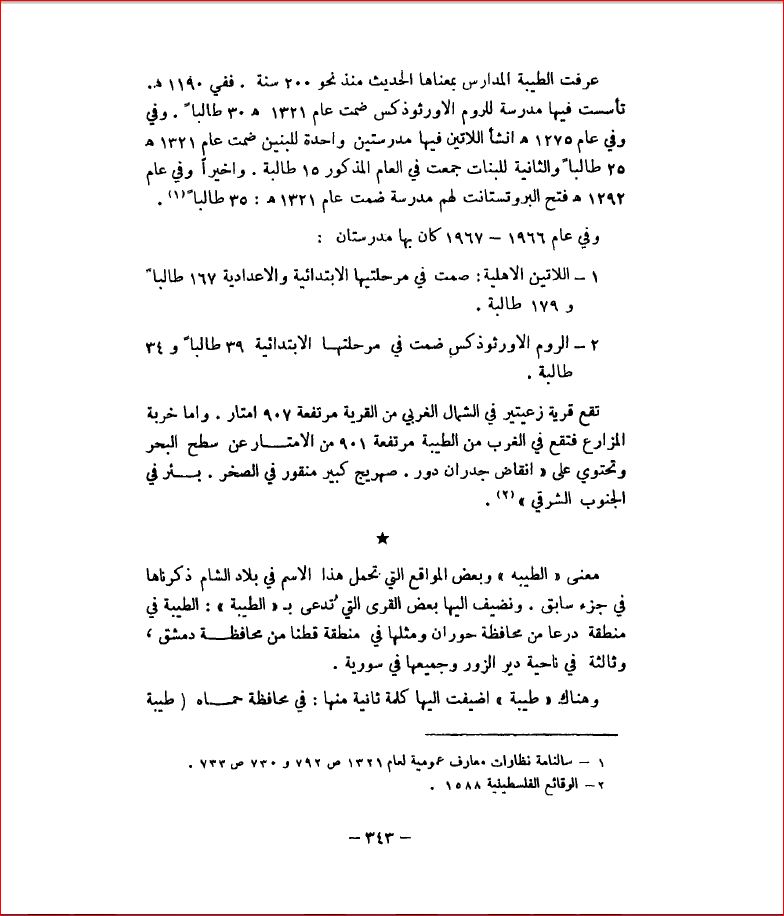 عرفت الطيبة المدارس بمعناها الحديث منذ نحو ٢٠٠ سنة . ففي ١١٩٠ هـ.
تأسست فيها مدرسة للروم الاورثوذكس ضمت عام ١٣٢١ ه ٣٠ طالباً . وفي
وفي عام ١٢٧٥ ه انشأ اللاتين فيها مدرستين واحدة للبنين ضمت عام ١٣٢١ ه
٢٥ طالباً والثانية للبنات جمعت في العام المذكور ١٥ طالبة . واخيراً وفي عام
١٢٩٢ ه فتح البروتستانت لهم مدرسة ضمت عام ١٣٢١ ه : ٣٥ طالباً (١) .
وفي عام ١٩٦٦ – ١٩٦٧ كان بها مدرستان :
١ – اللاتين الاهلية : صمت في مرحلتيها الابتدائية والاعدادية ١٦٧ طالباً
و ١٧٩ طالبة .
٢ – الروم الاورثوذكس ضمت في مرحلتهـا الابتدائية ٣٩ طالباً و ٣٤
طالبة .
تقع قرية زعيتير في الشمال الغربي من القرية مرتفعة ٩٠٧ امتار . واما خربة
المزارع فتقع في الغرب من الطيبة مرتفعة ٩٠١ من الامتـــار عن سطح البحر
وتحتوي على « انقاض جدران دور . صهريج كبير منقور في الصخر . بـــئر في
الجنوب الشرقي » (٢) .
★
معنى « الطيبه » وبعض المواقع التي تحمل هذا الاسم في بلاد الشام ذكرناها
في جزء سابق . ونضيف اليها بعض القرى التي تُدعى بـ « الطيبة » : الطيبة في
منطقة درعا من محافظة حوران ومثلها في منطقة قطنا من محافظـــة دمشق ،
وثالثة في ناحية دير الزور وجميعها في سورية .
وهناك « طيبة » اضيفت اليها كلمة ثانية منها : في محافظة حمـــاه ( طيبة
١ – سالنامة نظارات معارف عمومية لعام ١٣٢١ ص ٧٩٢ و ٧٣٠ ص ٧٣٣ .
٢– الوقائع الفلسطينية ١٥٨٨ .
– ٣٤٣ –